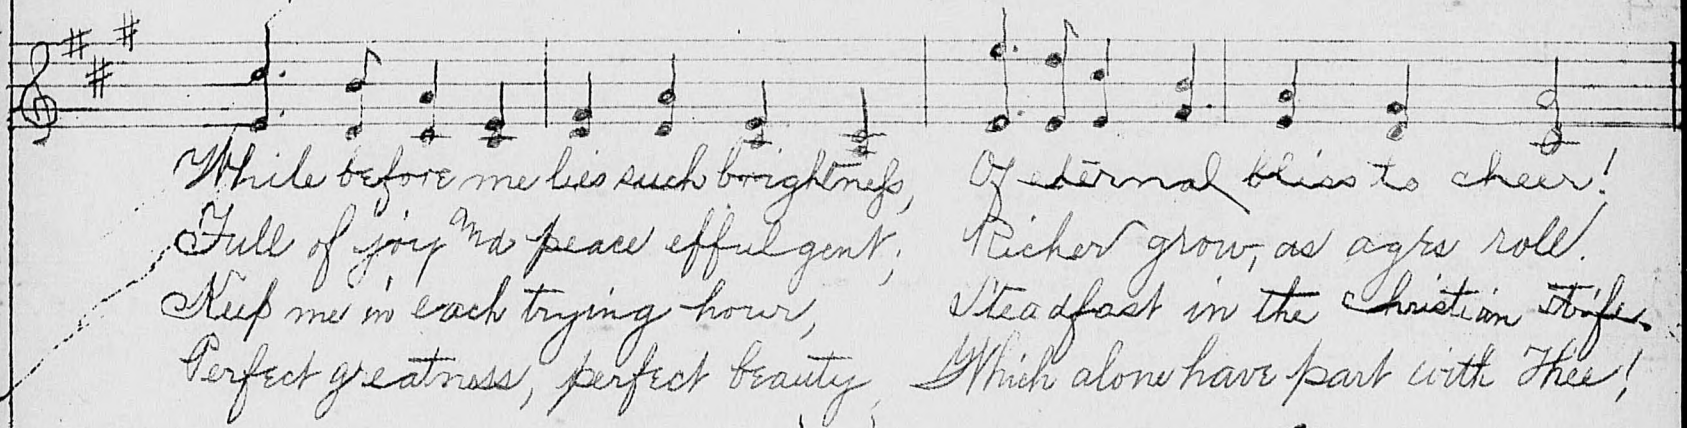 While before me lies such brightness, Of eternal bliss to cheer!
Full of joy and peace effulgent; Richer grow, as ages roll.
Keep me in each trying hour, Steadfast in the Christian strife.
Perfect greatness, perfect beauty, Which alone have part with Thee!